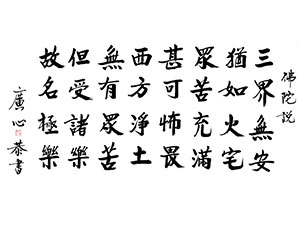 佛陀説
三界無安
猶如火宅
眾苦充滿
甚可怖畏
西方淨土
無有眾苦
但受諸樂
故名極樂
廣心恭書